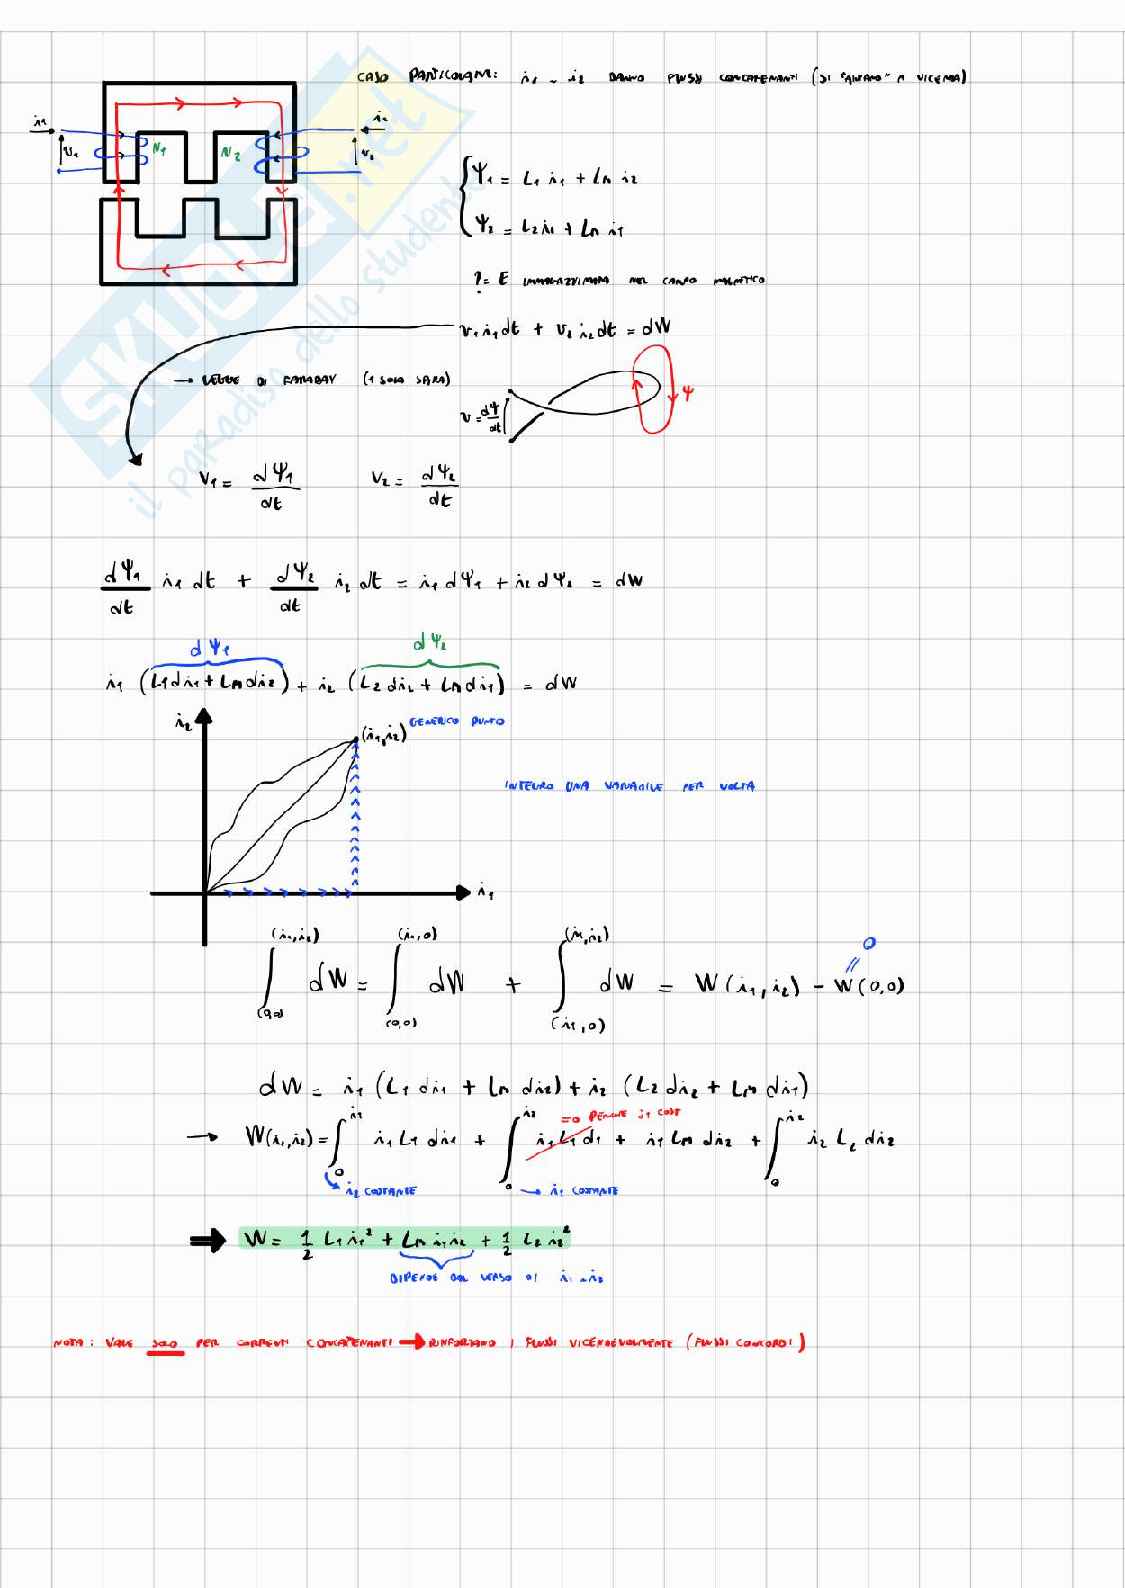 CASO PARTICOLARE: i1 e i2 DANNO FLUSSI CONCATENANTI (SI "AIUTANO" A VICENDA)
i1
i2
v1
N1
N2
v2
Ψ1 = L1 i1 + Lm i2
Ψ2 = L2 i1 + Lm i1
? = E IMMAGAZZINATA NEL CAMPO MAGNETICO
v1 i1 dt + v2 i2 dt = dW
→ LEGGE DI FARADAY (1 SOLA SPIRA)
v = dΨ/dt
Ψ
V1 = dΨ1/dt V2 = dΨ2/dt
dΨ1/dt i1 dt + dΨ2/dt i2 dt = i1 dΨ1 + i2 dΨ2 = dW
dΨ1 dΨ2
i1 (L1 di1 + Lm di2) + i2 (L2 di2 + Lm di1) = dW
i2
(i1, i2) GENERICO PUNTO
INTEGRO UNA VARIABILE PER VOLTA
i1
∫(0,0)(i1,i2) dW = ∫(0,0)(i1,0) dW + ∫(i1,0)(i1,i2) dW = W(i1, i2) - W(0,0)
0
dW = i1 (L1 di1 + Lm di2) + i2 (L2 di2 + Lm di1)
=0 PERCHÈ i1 COST
→ W(i1,i2) = ∫0i1 i1 L1 di1 + ∫0i2 i1 L1 d1 + i1 Lm di2 + ∫0i2 i2 L2 di2
i2 COSTANTE → i1 COSTANTE
⇒ W = 1/2 L1 i1² + Lm i1 i2 + 1/2 L2 i2²
DIPENDE DAL VERSO DI i1 e i2
NOTA: VALE SOLO PER CORRENTI CONCATENANTI → RINFORZANO I FLUSSI VICENDEVOLMENTE (FLUSSI CONCORDI)
SKUOLA.net
il paradiso dello studente